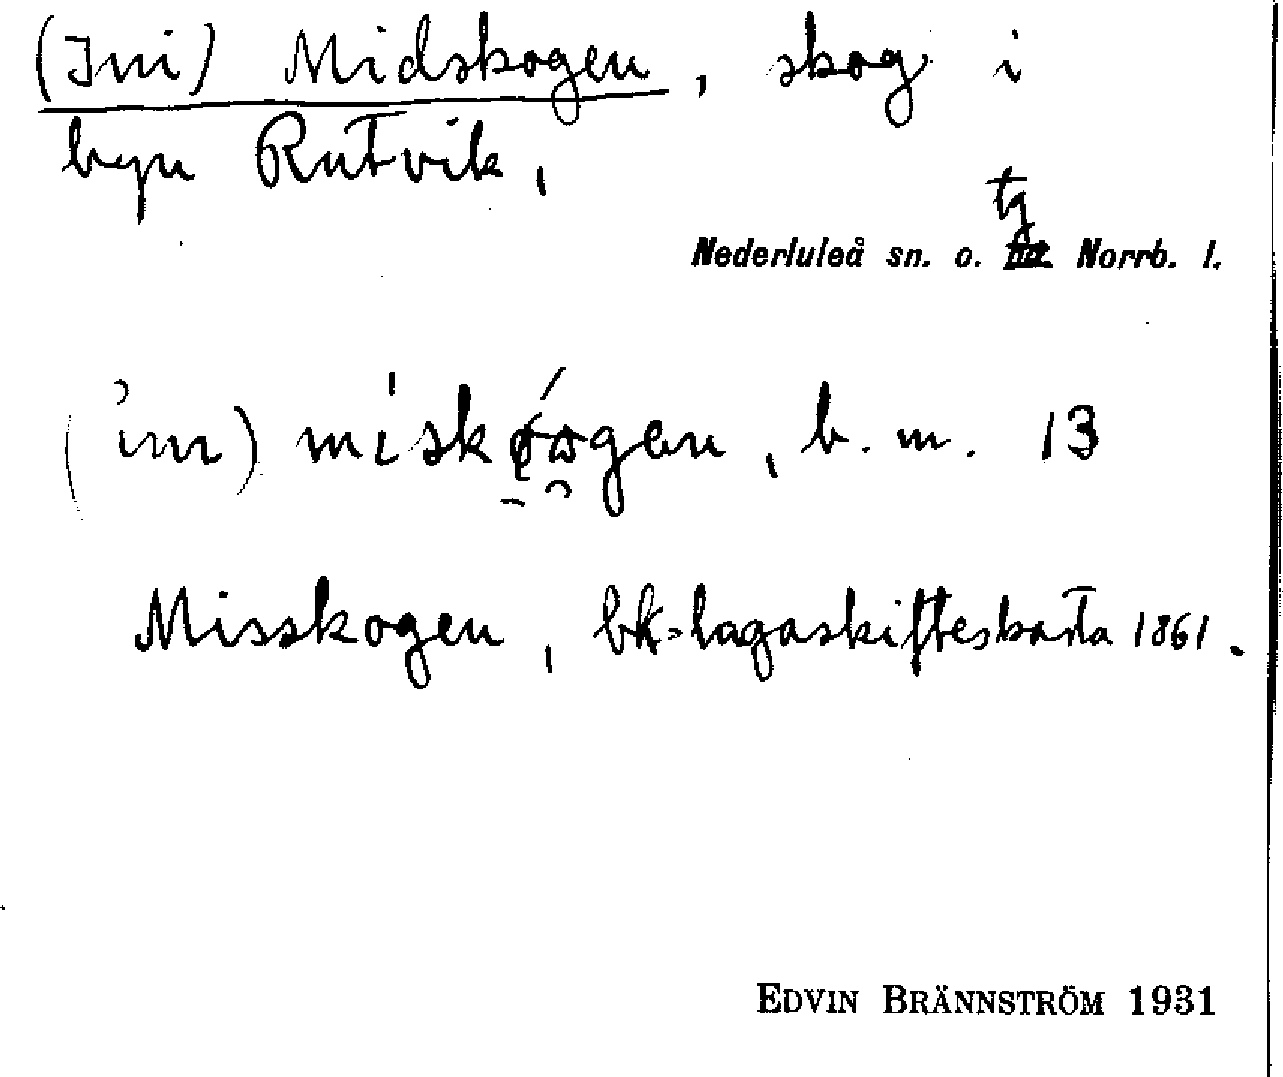 (Ini) Midskogen, skog i
byn Rutvik,
tg
Nederluleå sn. o. Norrb. l.
(im) miskogen, b. m. 13
Misskogen, bk=lagaskifteskarta 1861.
EDVIN BRÄNNSTRÖM 1931